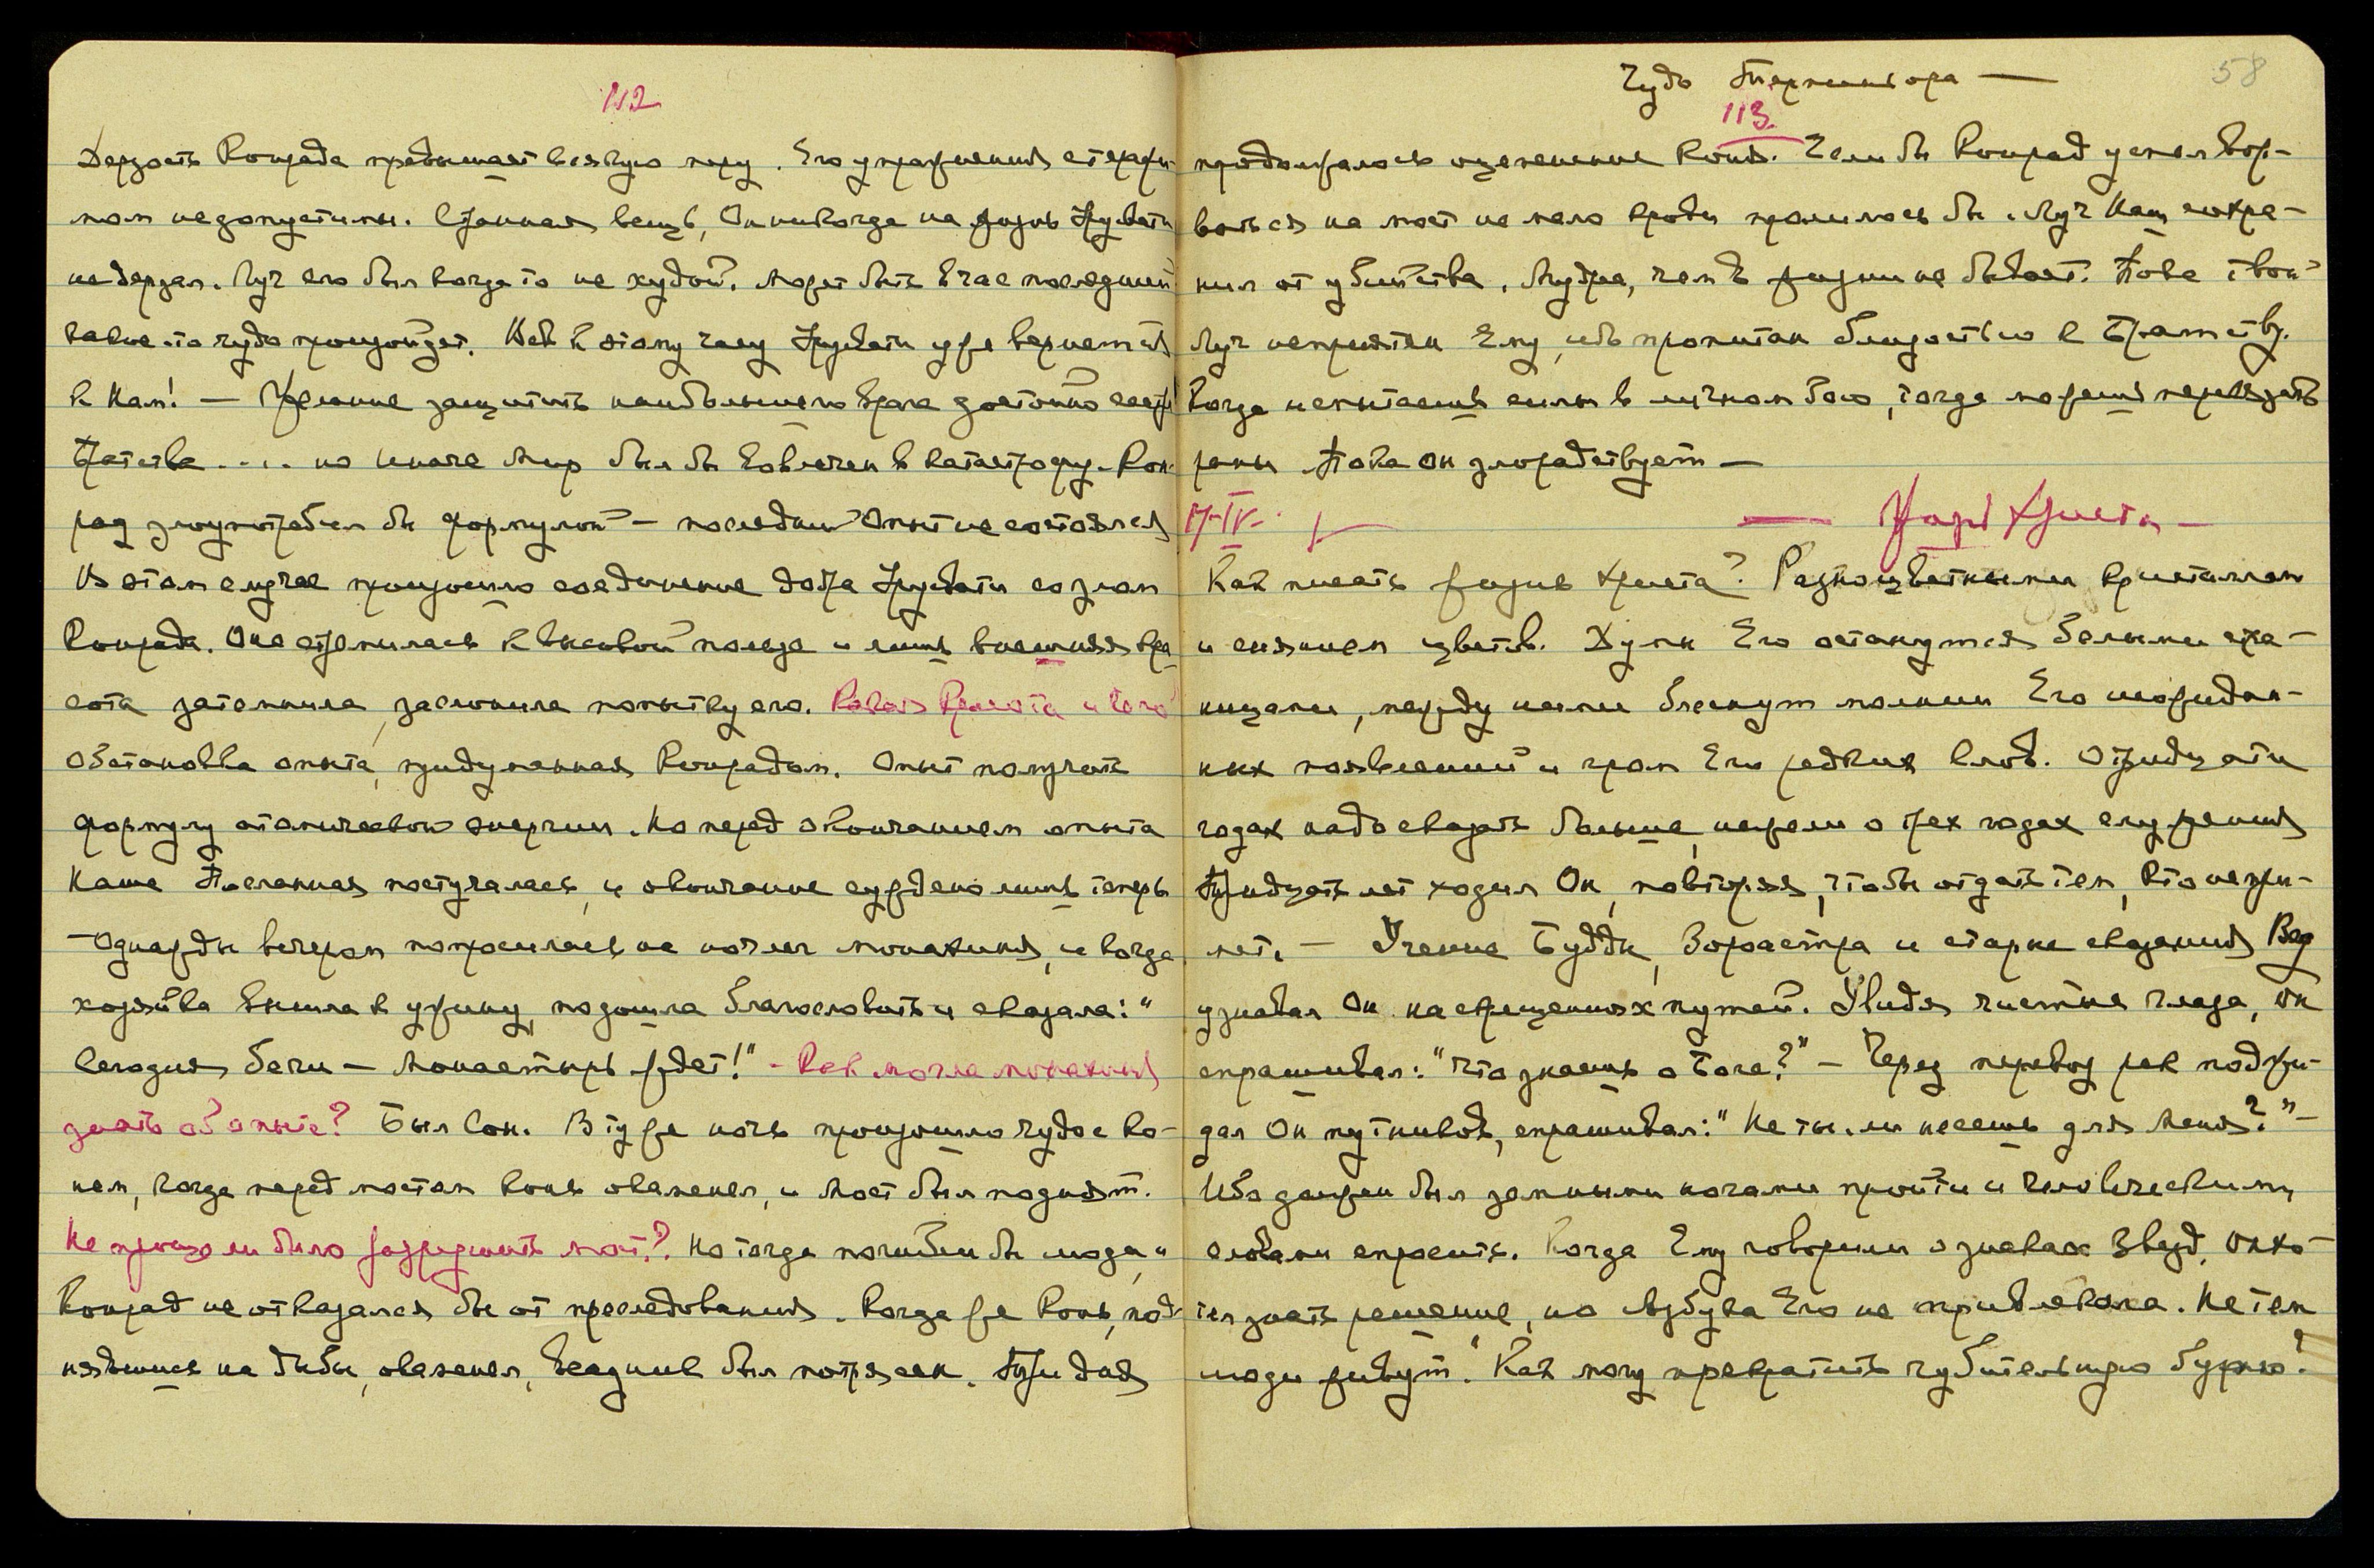 112
Дерзость Конрада превышает всякую меру. Его упражнения с
мом недопустимы. Странная вещь, Он никогда на жизнь Урусвати
не дерзал. Луч его был когда-то не худой. Может быть в час последний
какое-то чудо произойдет. Ведь к этому часу Урусвати уже вернется
к Нам! — Желание защитить наибольшего врага достойно
Братства.... но иначе Мир был бы вовлечен в катастрофу. Кон-
рад злоупотребил бы формулой — последний Опыт не состоялся
В этом случае произошло соединение добра Урусвати со злом
Конрада. Она стремилась к высокой пользе и лишь внешняя кра-
сота затемнила, заслонила попытку его. Какая Красота и чего?
Обстановка опыта, придуманная Конрадом. Опыт получить
формулу атомической энергии. Но перед окончанием опыта
Наша Посланная постучалась, и окончание суждено лишь теперь
Однажды вечером попросилась на ночлег монахиня, и когда
хозяйка вышла к ужину, подошла благословить и сказала: "
Сегодня беги — Монастырь ждет!" - Как могла монахиня
знать об опыте? Был Сон. В ту же ночь произошло чудо с ко-
нем, когда перед мостом конь окаменел, и мост был поднят.
Не проще ли было разрушить мост? Но тогда погибли бы люди, и
Конрад не отказался бы от преследования. Когда же Конь, под-
нявшись на дыбы, окаменел, всадник был потрясен. Три дня
Чудь —
58
113.
продолжалось оцепенение Коня. Если бы Конрад успел вор-
ваться на мост не мало крови пролилось бы. Луч Наш сохра-
нил от убийства. Мудрее, чем в жизни не бывает. Пока твой
Луч неприятен Ему, ибо пропитан близостью к Братству.
Когда испытаешь силы в личном бою, тогда можешь перевязать
раны. Пока он злорадствует —
17-IV-
— Христа —
Как писать жизнь Христа? Разноцветными кристаллами
и сиянием цветов. Думы Его останутся белыми стра-
ницами, между ними блеснут молнии Его неожидан-
ных появлений и гром Его редких слов. О тридцати
годах надо сказать больше, нежели о трех годах служения
Тридцать лет ходил Он, повторяя, чтобы отдать тем, кто не при-
мет. — Учение Будды, Зороастра и старые сказания Вед
узнавал Он на скрещениях путей. Увидя чистые глаза, Он
спрашивал: "Что знаешь о Боге?" — Через перевоз рек поджи-
дал Он путников, спрашивал: "Не ты-ли несешь для Меня?" —
Ибо должен был земными ногами пройти и человеческими
словами спросить. Когда Ему говорили о знаках Звезд, Он хо-
тел знать решение, но Азбука Его не привлекала. Не тем
люди живут. "Как могу прекратить губительную бурю?